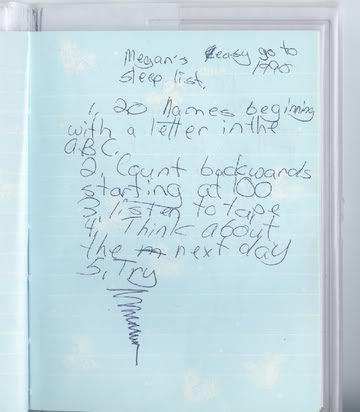 Megan's easy go to
sleep list. 1990
1. 20 Names beginning
with a letter in the
ABC.
2. Count backwards
starting at 100
3. listen to tape
4. Think about
the next day
5. Try